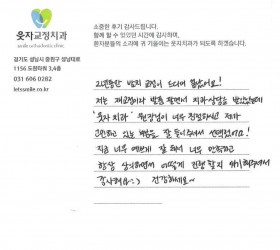 웃자교정치과
소중한 후기 감사드립니다.
함께 할 수 있었던 시간에 감사하며,
환자분들의 소리에 귀 기울이는 웃자치과가 되도록 하겠습니다.
경기도 성남시 중원구 성남대로
1156 도원타워 3,4층
031 606 0282
letssmile.co.kr
2년동안 반의 교정이 드디어 끝났어요!
저는 재교정이라 발품 팔면서 치과 상담을 받았었는데
"웃자 치과" 원장님이 너무 친절하시고 제가
고민하고 있는 부분을 잘 들어주셔서 선택했어요!
치료 너무 예쁘게 잘 되서 너무 만족하고
항상 상의하면서 어떻게 진행할지 얘기해주셔서
감사해요 :) 건강하세요~